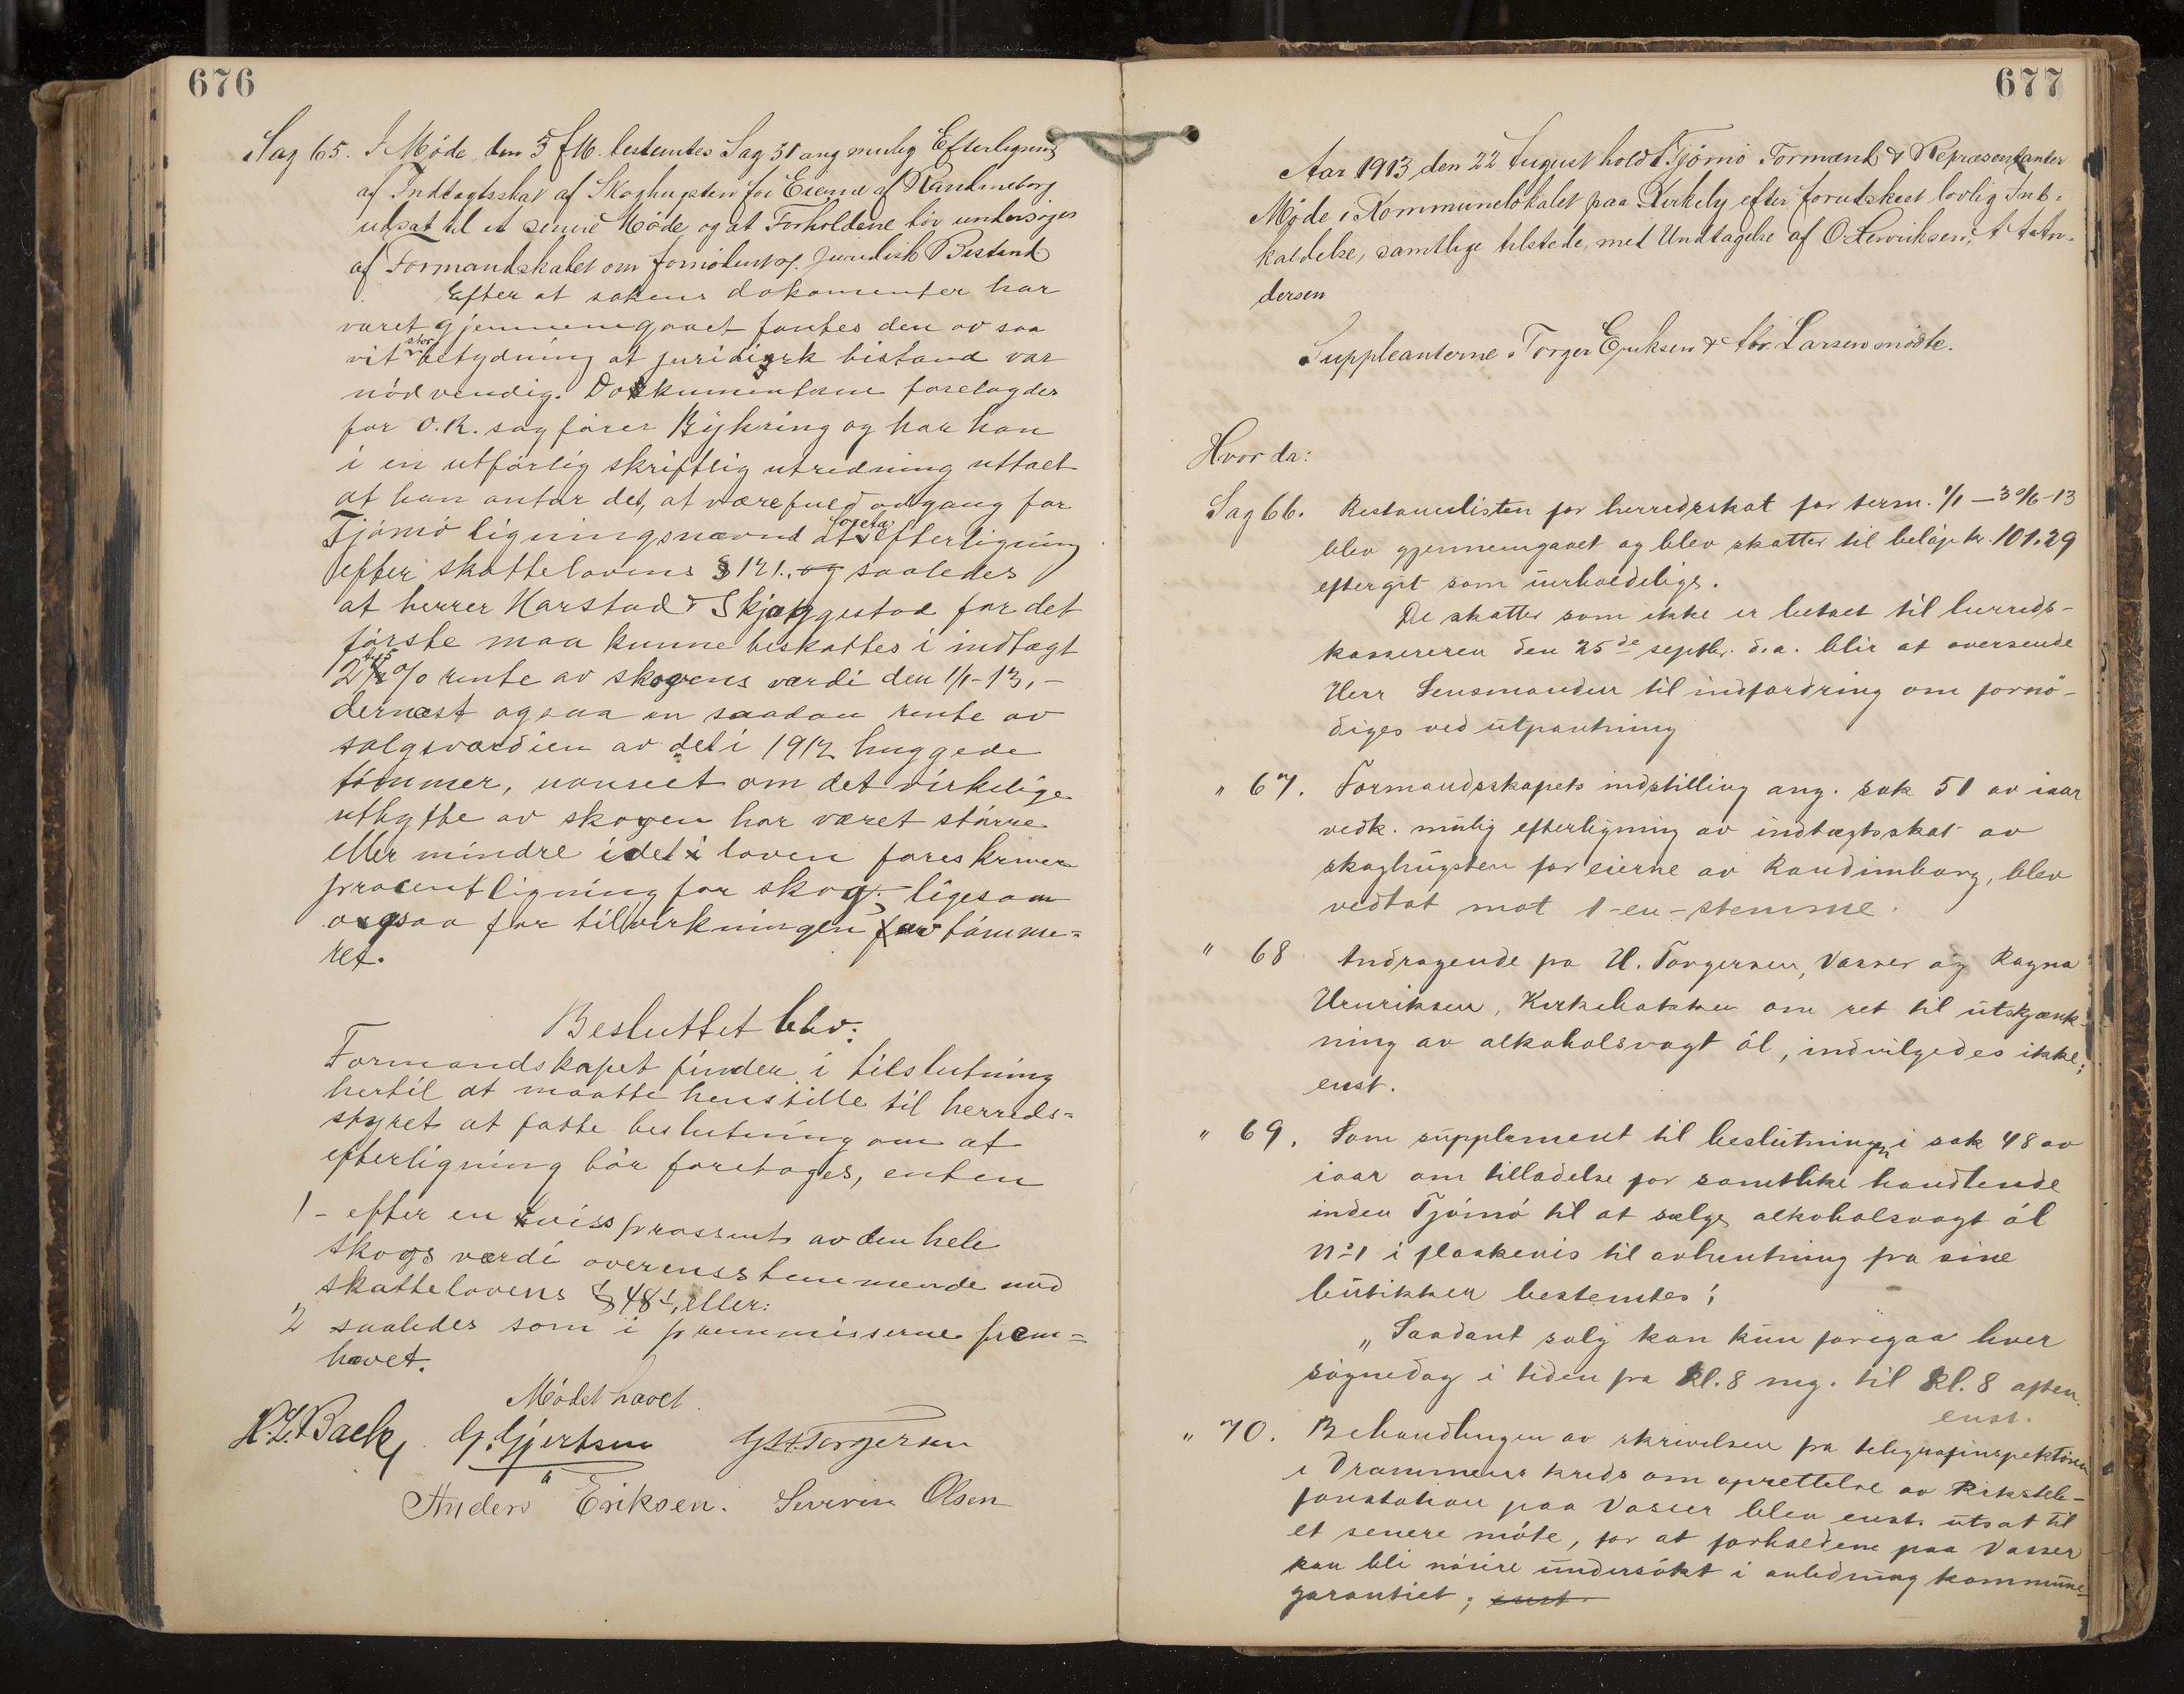 676
Sag 65. I Møde den 5 f.M. bestemtes Sag 51 ang mulig Efterligning
af Indtægtsskat af Skoghugsten for Eierne af Randineborg
udsat til et senere Møde og at Forholdene bør undersøges
af Formandskabet om fornødent ved juridisk Bistand
Efter at sakens dokumenter har
været gjennemgaaet fantes den av saa
vit stor betydning at juridisk bistand var
nödvendig. Dokumenterne forelagdes
for O.R. sagfører Bÿhring og har han
i en utförlig skriftlig utredning uttalt
at han antar det, at være fuld adgang for
Tjömö ligningsnævnd at foreta efterligning
efter skattelovens § 121. og saaledes
at herrer Harstad & Skjæggestad for det
förste maa kunne beskattes i indtægt
2 % rente av skogens værdi den 1/1-13, -
dernæst ogsaa en saadan rente av
salgsværdien av det i 1912 huggede
tömmer, uanseet om det virkelige
utbytte av skogen har været större
eller mindre idet loven foreskriver
procentligning for skog, ligesom
ogsaa for tilvirkningen av tömme=
ret.
Besluttet blev:
Formandskapet finder i tilslutning
hertil at maatte henstille til herreds=
styret at fatte beslutning om at
efterligning bör foretages, enten
1 - efter en viss prossent av den hele
skogs værdi overensstemmende med
skattelovens § 48 , eller:
2 saaledes som i præmmisserne frem=
hævet.
Mödet hævet.
H.L. Back G. Gjertsen G H Torgersen
Anders Eriksen. Severin Olsen
677
Aar 1913 den 22 August holdt Tjömö Formænd & Repræsentanter
Møde i Kommunelokalet paa Kirkely efter forutskeet lovlig Ind-
kaldelse, samtlige tilstede, med Undtagelse af O. Henriksen, A An-
dersen
Suppleanterne Torger Eriksen & Larsen mødte.
Hvor da:
Sag 66. Restancelisten for herredsskat for term. 1/1 — 30/6-13
blev gjennemgaaet og blev skatter til beløp kr. 101.29
eftergit som uerholdelige.
De skatter som ikke er betalt til herreds-
kassereren den 25de septbr. d.a. blir at oversende
Herr Lensmanden til indfordring om fornö-
diges ved utpantning
" 67. Formandsskapets indstilling ang. sak 51 av iaar
vedk. mulig efterligning av indtægtsskat av
skoghugsten for eierne av Randineborg, blev
vedtat mot 1-en-stemme.
" 68 Andragende fra H. Torgersen, Vasser og Ragna
Henriksen, Kirkebakken om ret til utskjænk-
ning av alkoholsvagt öl, indvilgedes ikke;
enst.
" 69. Som supplement til beslutningen i sak 48 av
iaar om tilladelse for samtlike handlende
inden Tjömö til at sælge alkoholsvagt öl
No 1 i flaskevis til avhentning fra sine
butikker bestemtes;
„ Saadant salg kan kun foregaa hver
søgnedag i tiden fra Kl. 8 mg. til Kl. 8 aften.
enst.
" 70. Behandlingen av skrivelsen fra telegrafinspektören
i Drammens kreds om oprettelse av Rikstele-
fonstation paa Vasser blev enst. utsat til
et senere möte, for at forholdene paa Vasser
kan bli nöiere undersökt i anledning kommune-
garantiet; enst.